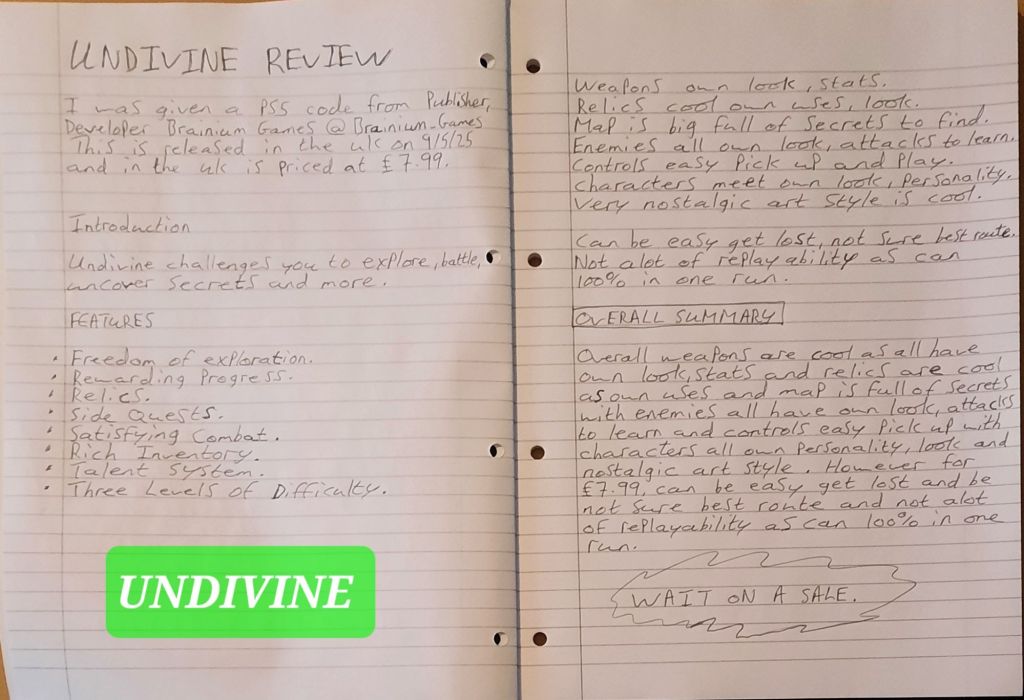 UNDIVINE REVIEW
I was given a PS5 code from Publisher,
Developer Brainium Games @ Brainium-Games
This is released in the uk on 9/5/25
and in the uk is priced at £7.99.
Introduction
Undivine challenges you to explore, battle,
uncover secrets and more.
FEATURES
• Freedom of exploration.
• Rewarding Progress.
• Relics.
• Side Quests.
• Satisfying Combat.
• Rich Inventory.
• Talent System.
• Three Levels of Difficulty.
UNDIVINE
Weapons own look, stats.
Relics cool own uses, look.
Map is big full of secrets to find.
Enemies all own look, attacks to learn.
Controls easy Pick up and Play.
Characters meet own look, Personality.
Very nostalgic art style is cool.
Can be easy get lost, not sure best route.
Not alot of replayability as can
100% in one run.
OVERALL SUMMARY
Overall weapons are cool as all have
own look, stats and relics are cool
as own uses and map is full of secrets
with enemies all have own look, attacks
to learn and controls easy Pick up with
characters all own Personality, look and
nostalgic art style. However for
£7.99, can be easy get lost and be
not sure best route and not alot
of replayability as can 100% in one
run.
WAIT ON A SALE.